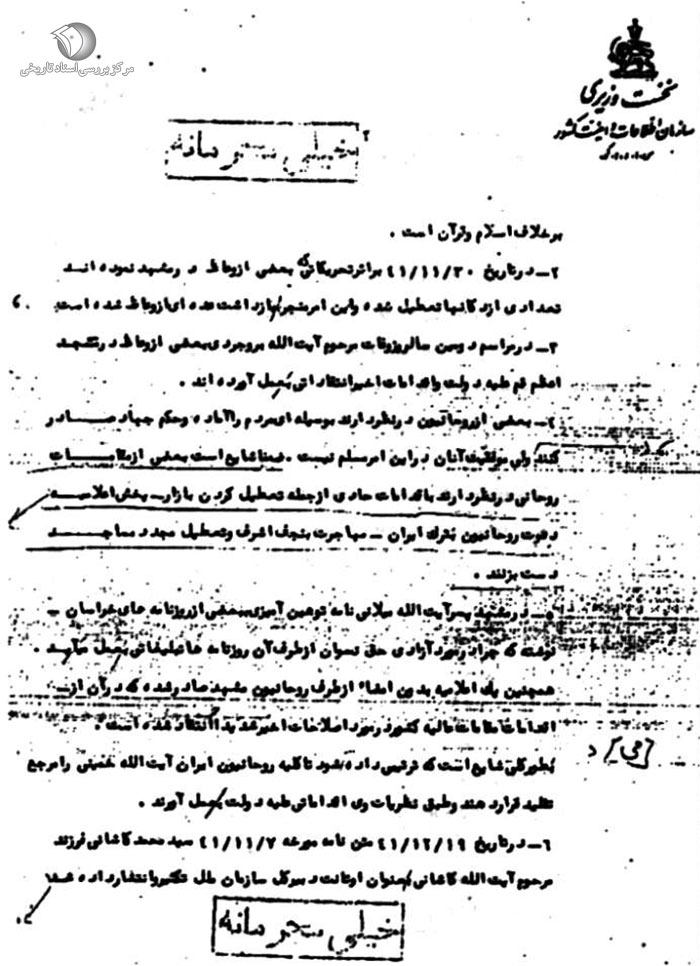 مرکز بررسی اسناد تاریخی
نخست وزیری
سازمان اطلاعات و امنیت کشور
س.ا.و.ا.ک
خیلی محرمانه
۲
برخلاف اسلام وقرآن است .
۲- درتاریخ ۴۱/۱۱/۳۰ براثرتحریکاتی که بعضی ازوعاظ در مشهد نموده اند
تعدادی ازدکانها تعطیل شده واین امرمنجر ببازداشت عده ای ازوعاظ شده است
۳- درمراسم دومین سالروزوفات مرحوم آیت الله بروجردی بعضی ازوعاظ درمسجد
اعظم قم علیه دولت واقدامات اخیرانتقاداتی بعمل آورده اند .
۴- بعضی ازروحانیون درنظردارند بوسیله ای مردم راآماده وحکم جهاد صادر
کنند ولی موفقیت آنان دراین امرمسلم نیست . ضمنا شایع است بعضی ازمقامات
روحانی درنظردارند باقدامات حادی ازجمله تعطیل کردن بازار- پخش اعلامیه
دعوت روحانیون بترک ایران - مهاجرت بنجف اشرف وتعطیل مجدد مساجد
دست بزنند .
۵- درمشهد پسرآیت الله میلانی نامه توهین آمیزی ببعضی ازروزنامه های خراسان -
نوشته که چرادرموردآزادی حق نسوان ازطرف آن روزنامه هاتبلیغاتی بعمل میآید .
همچنین یک اعلامیه بدون امضاء ازطرف روحانیون مشهد صادرشده که درآن از-
اقدامات مقامات عالیه کشوردرمورد اصلاحات اخیرشدیدا انتقاد شده است .
بطورکلی شایع است که ترتیبی داده شود تاکلیه روحانیون ایران آیت الله خمینی رامرجع
[می] د
تقلید قراردهند وطبق نظریات وی اقداماتی علیه دولت بعمل آورند .
۶- درتاریخ ۴۱/۱۲/۱۹ متن نامه مورخه ۴۱/۱۱/۷ سید محمد کاشانی فرزند
مرحوم آیت الله کاشانی بعنوان اوتانت دبیرکل سازمان ملل تکثیروانتشارداده شد
خیلی محرمانه